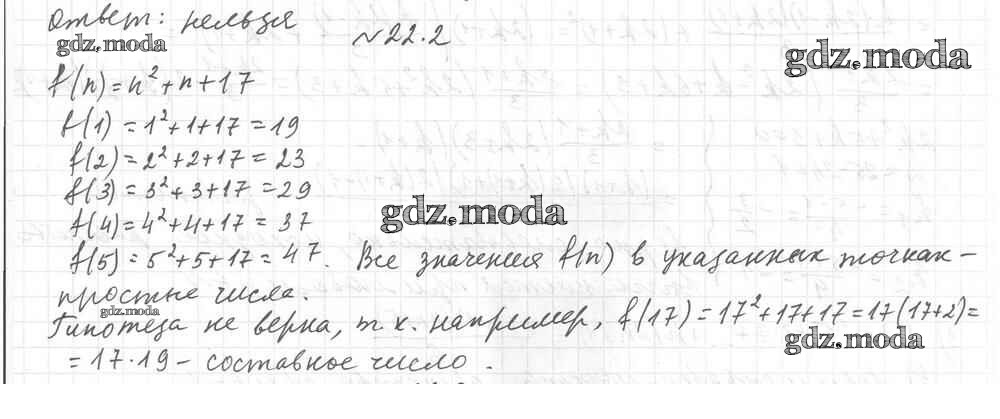 Ответ: нельзя
№22.2
gdz.moda
gdz.moda
f(n) = n² + n + 17
f(1) = 1² + 1 + 17 = 19
f(2) = 2² + 2 + 17 = 23
f(3) = 3² + 3 + 17 = 29
gdz.moda
f(4) = 4² + 4 + 17 = 37
f(5) = 5² + 5 + 17 = 47. Все значения f(n) в указанных точках –
простые числа.
gdz.moda
Гипотеза не верна, т.к. например, f(17) = 17² + 17 + 17 = 17(17+2) =
gdz.moda
= 17·19 – составное число.